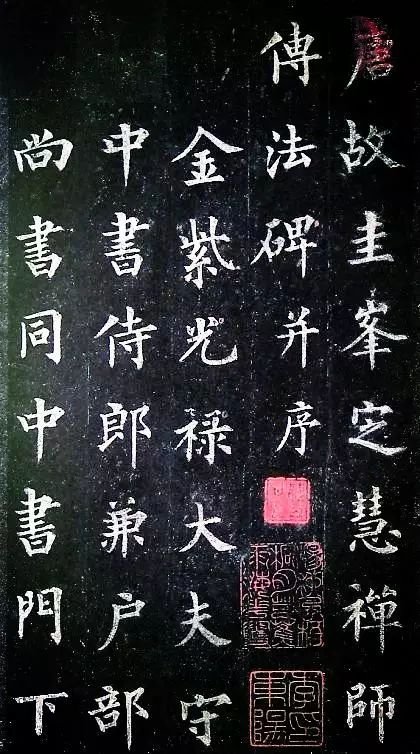 唐故圭峯定慧禪師
傳法碑并序
金紫光禄大夫守
中書侍郎兼户部
尚書同中書門下